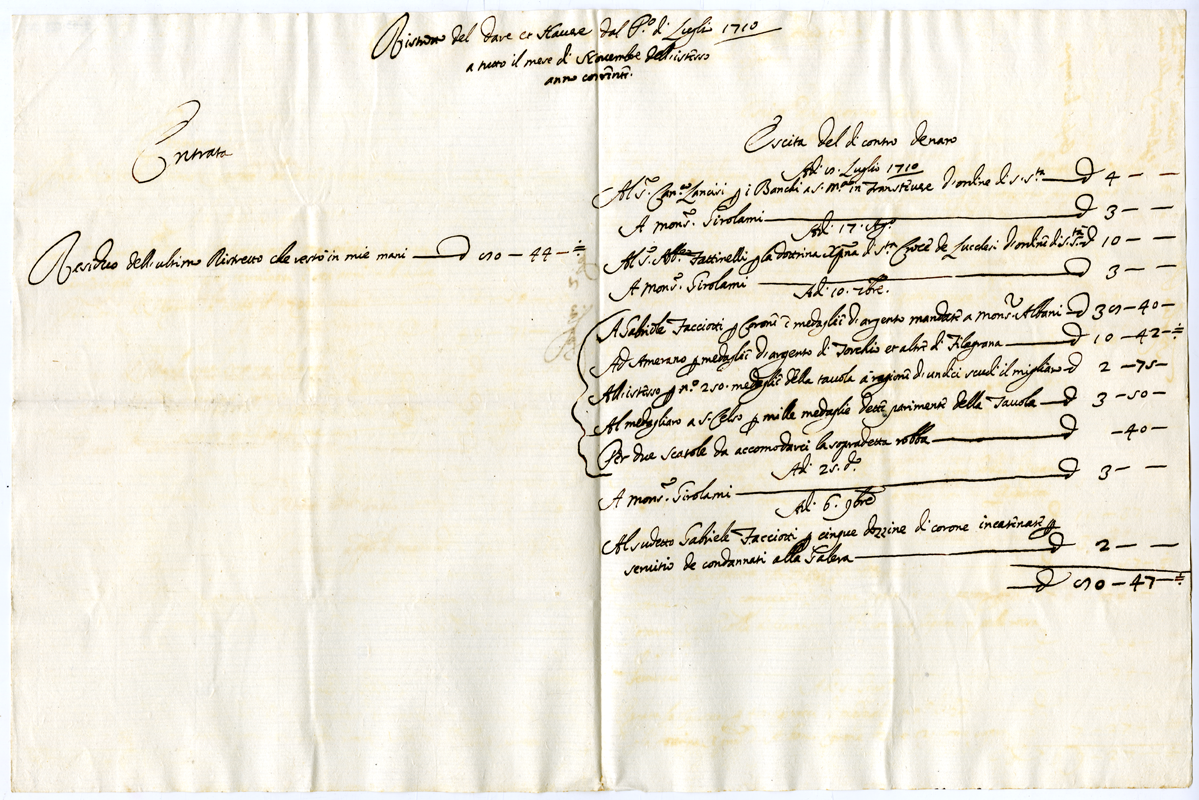 Ristretto del dare et Havere dal P.º di Luglio 1710
a tutto il mese di Novembre dell'istesso
anno corrente.
Entrata
Residuo dell'ultimo Ristretto che restò in mie mani — 50 — 44 —
Escita del di contro denaro
Adi 10. Luglio 1710
Al S.r Can.co Lancisi p i Banchi a S. M.a in Transtevere d'ordine di S. S.tà — 4 — —
A Mons.r Girolami — 3 — —
Adi 17. Ag.º
Al S.r Abb.e Fattinelli p la dottrina Xpna di S.ta Croce de Lucchesi d'ordine di S. S.tà 10 — —
A Mons.r Girolami — 3 — —
Adi 10. 7bre.
A Gabriele Facciotti p Corone e medaglie di argento mandate a Mons.r Albani — 35 — 40 —
Ad Amerano p medaglie di argento di Torchio et altre di Filagrana — 10 — 42 —
All'istesso p n.º 250. medaglie della tavola a ragione di undici scudi il migliaro 2 — 75 —
Al medagliaro a S. Celso p mille medaglie dette parimente della Tavola — 3 — 50 —
Per due scatole da accomodarci la sopradetta robba — 40 —
Adi 25. d.º
A Mons.r Girolami — 3 — —
Adi 6. 9bre
Al sudetto Gabriele Facciotti p cinque dozzine di corone incatenate p
servitio de condannati alla Galera — 2 — —
50 — 47 —